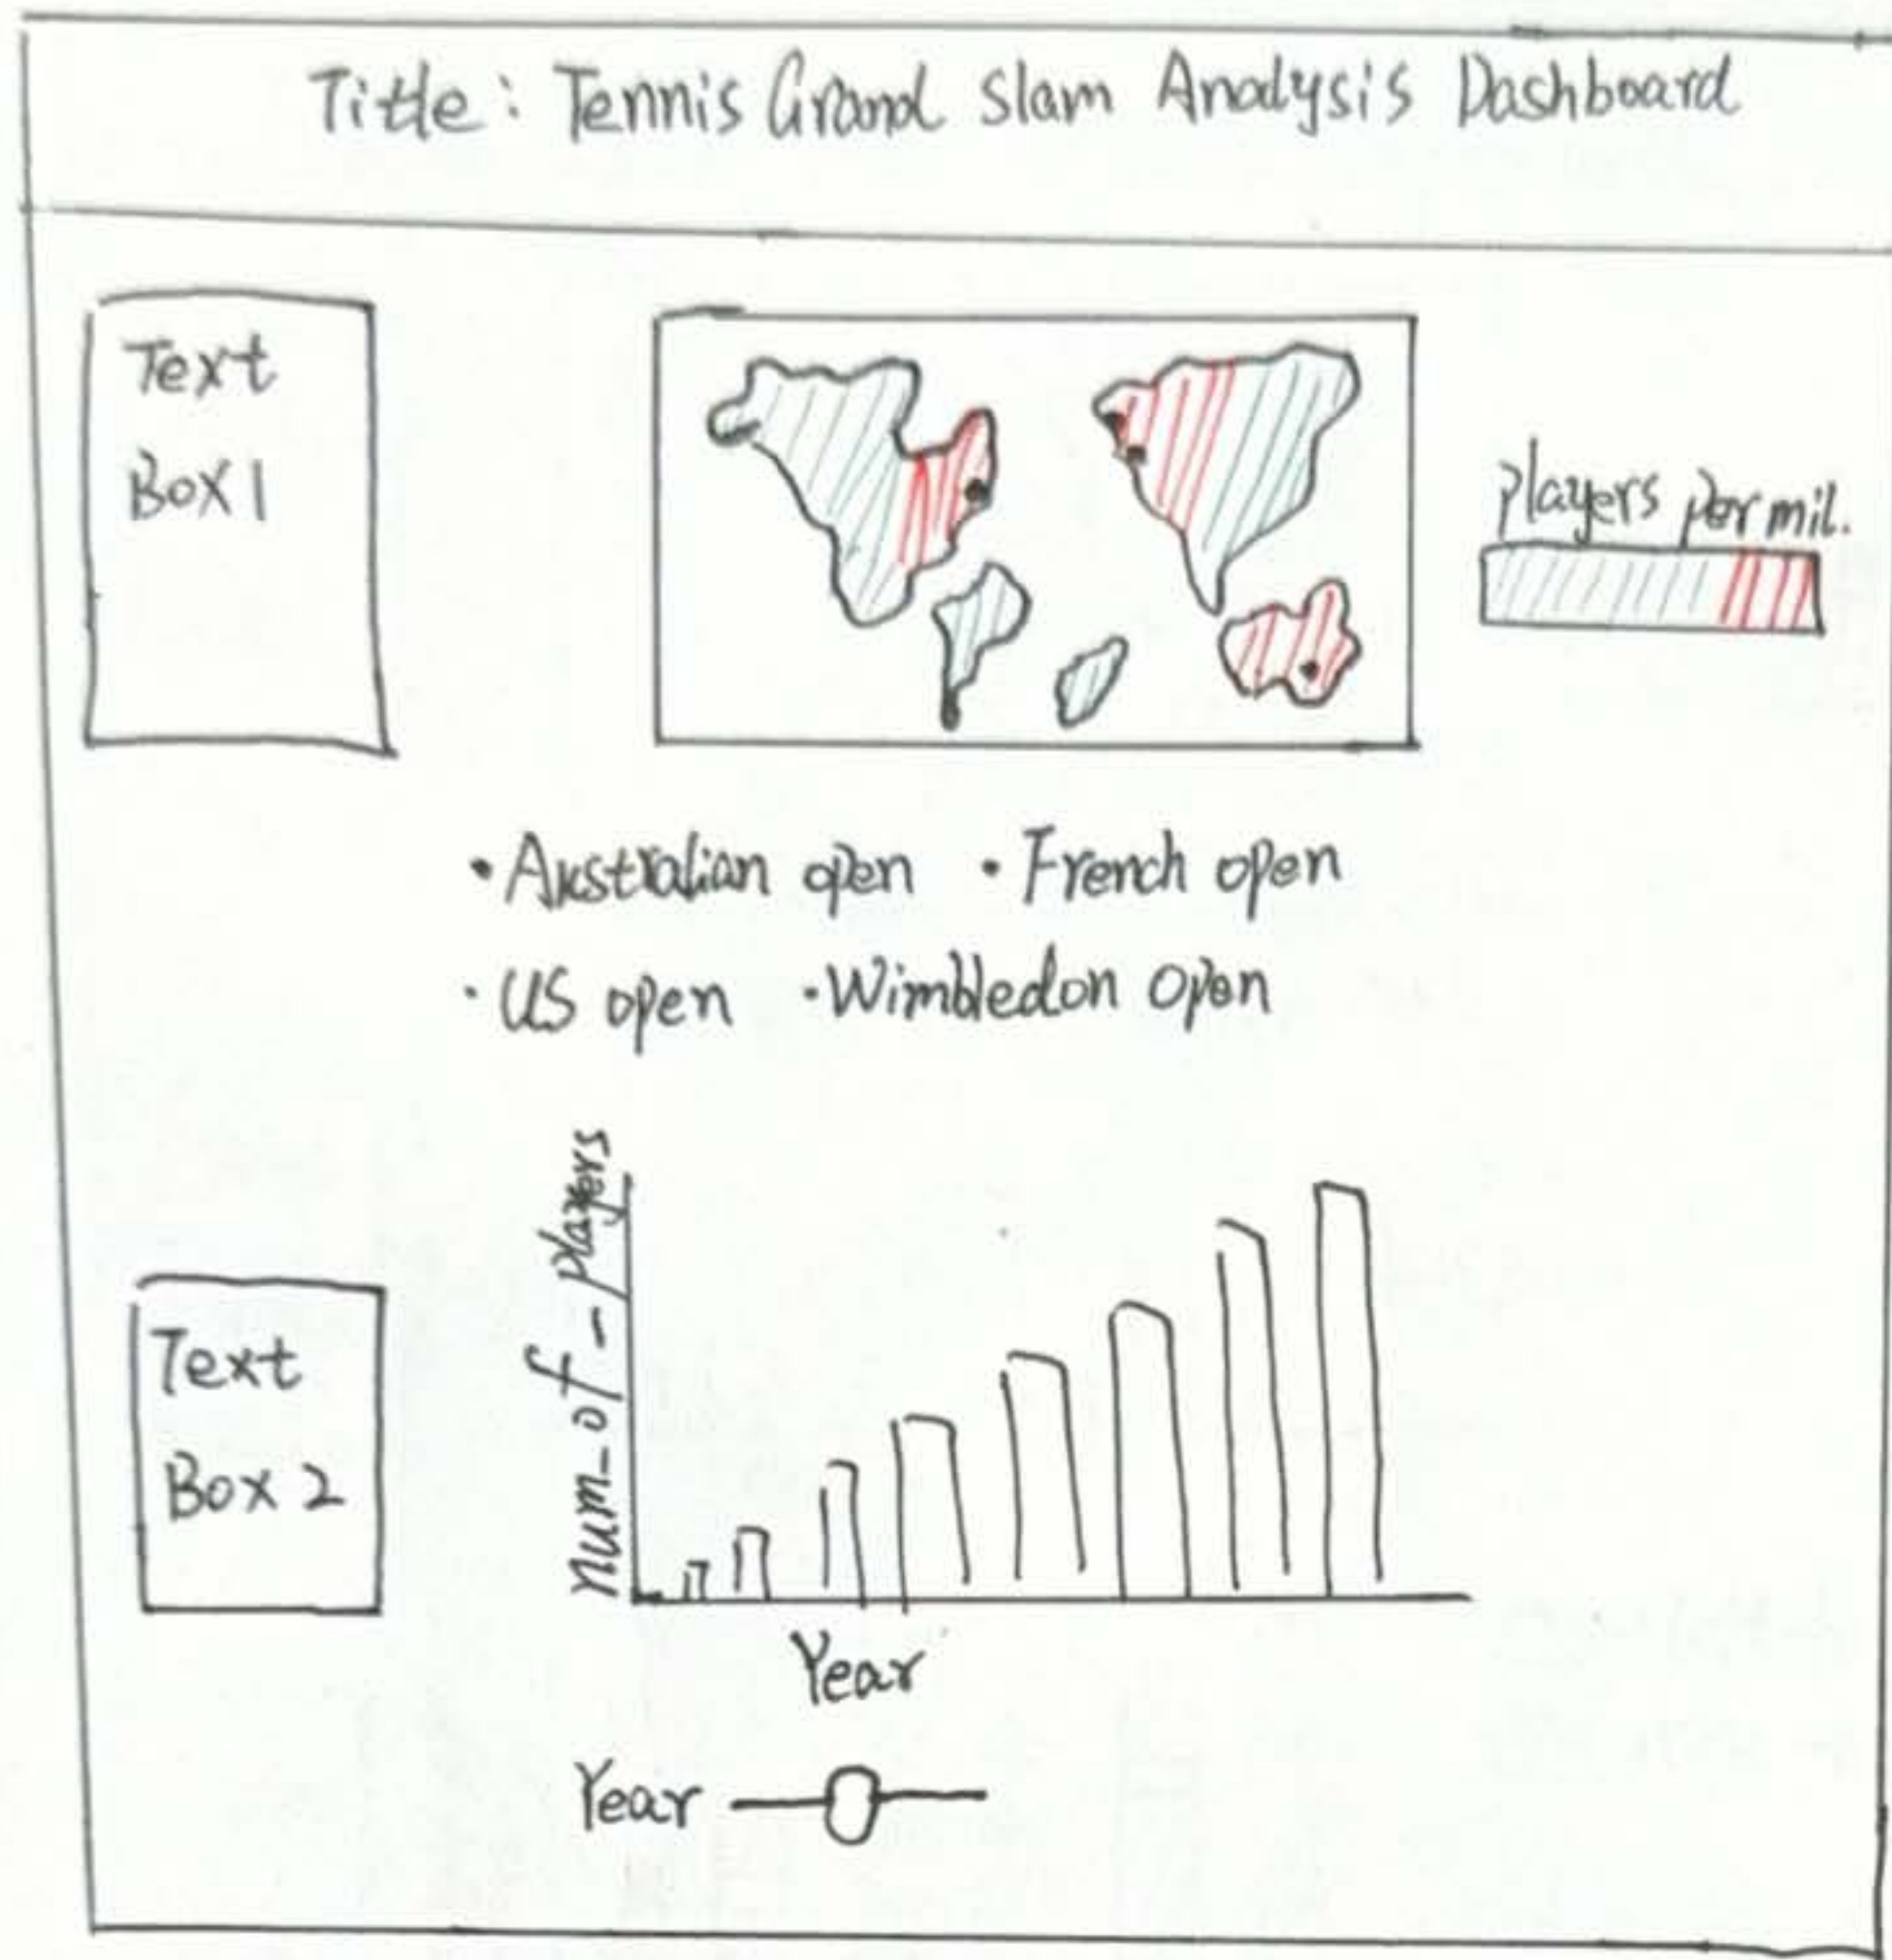 Title: Tennis Grand Slam Analysis Dashboard
Text
Box 1
players per mil.
• Australian open • French open
• US open • Wimbledon open
num_of_players
Text
Box 2
Year
Year